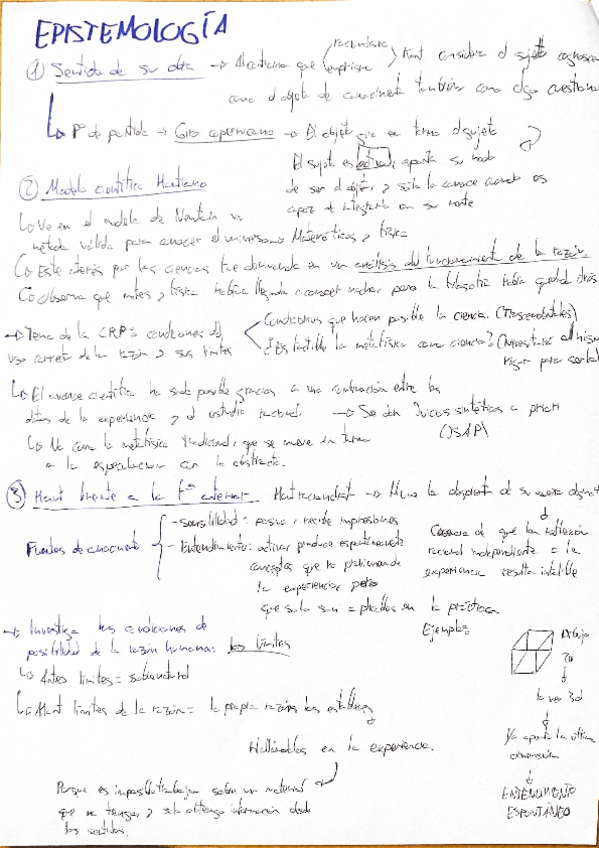 EPISTEMOLOGÍA
① Sentido de su obra → Al contrario que racionalistas Kant considera el sujeto
empiristas
como el objeto de conocimiento también como algo
↳ Pº de partida → Giro copernicano → El objeto gira en torno al sujeto
El sujeto es activo, aporta su modo
② Modelo científico Kantiano
de ser al objeto y sólo lo conoce cuando es
capaz de integrarlo en su mente
↳ Ve en el modelo de Newton un
método válido para conocer el universo = Matemáticas y física
↳ Este interés por las ciencias fue derivando en un análisis del funcionamiento de la razón.
↳ Observa que mates y física habían llegado a conocer mucho pero la filosofía había quedado atrás
→ Tema de la CRP = condiciones del
uso correcto de la razón y sus límites
Condiciones que hacen posible la ciencia. (Trascendentales)
¿Es factible la metafísica como ciencia?
↳ El avance científico ha sido posible gracias a una entre los
datos de la experiencia y el estudio racional. → Se dan Juicios sintéticos a priori
(JSAP)
↳ No como la metafísica tradicional, que se mueve en torno
a la especulación con lo abstracto.
③ Kant frente a la Fª anterior. Kant racionalista →
Fuentes de conocimiento
- Sensibilidad: pasiva, recibe impresiones
- Entendimiento: activo, produce espontáneamente
conceptos que no provienen de
la experiencia, pero
que solo son aplicados en la práctica
Conocía de que la
racional independiente a la
experiencia resulta
Ejemplo:
→ Investiga las condiciones de
posibilidad de la razón humana: los límites
↳ Antes límites = sobrenatural
↳ Kant límites de la razón = la propia razón los establece
Hallables en la experiencia.
Porque es imposible trabajar sobre un material
que no tengo, y sólo obtengo información desde
los sentidos.
2D
lo veo 3d
Yo aporto la última
dimensión
ENTENDIMIENTO
ESPONTÁNEO